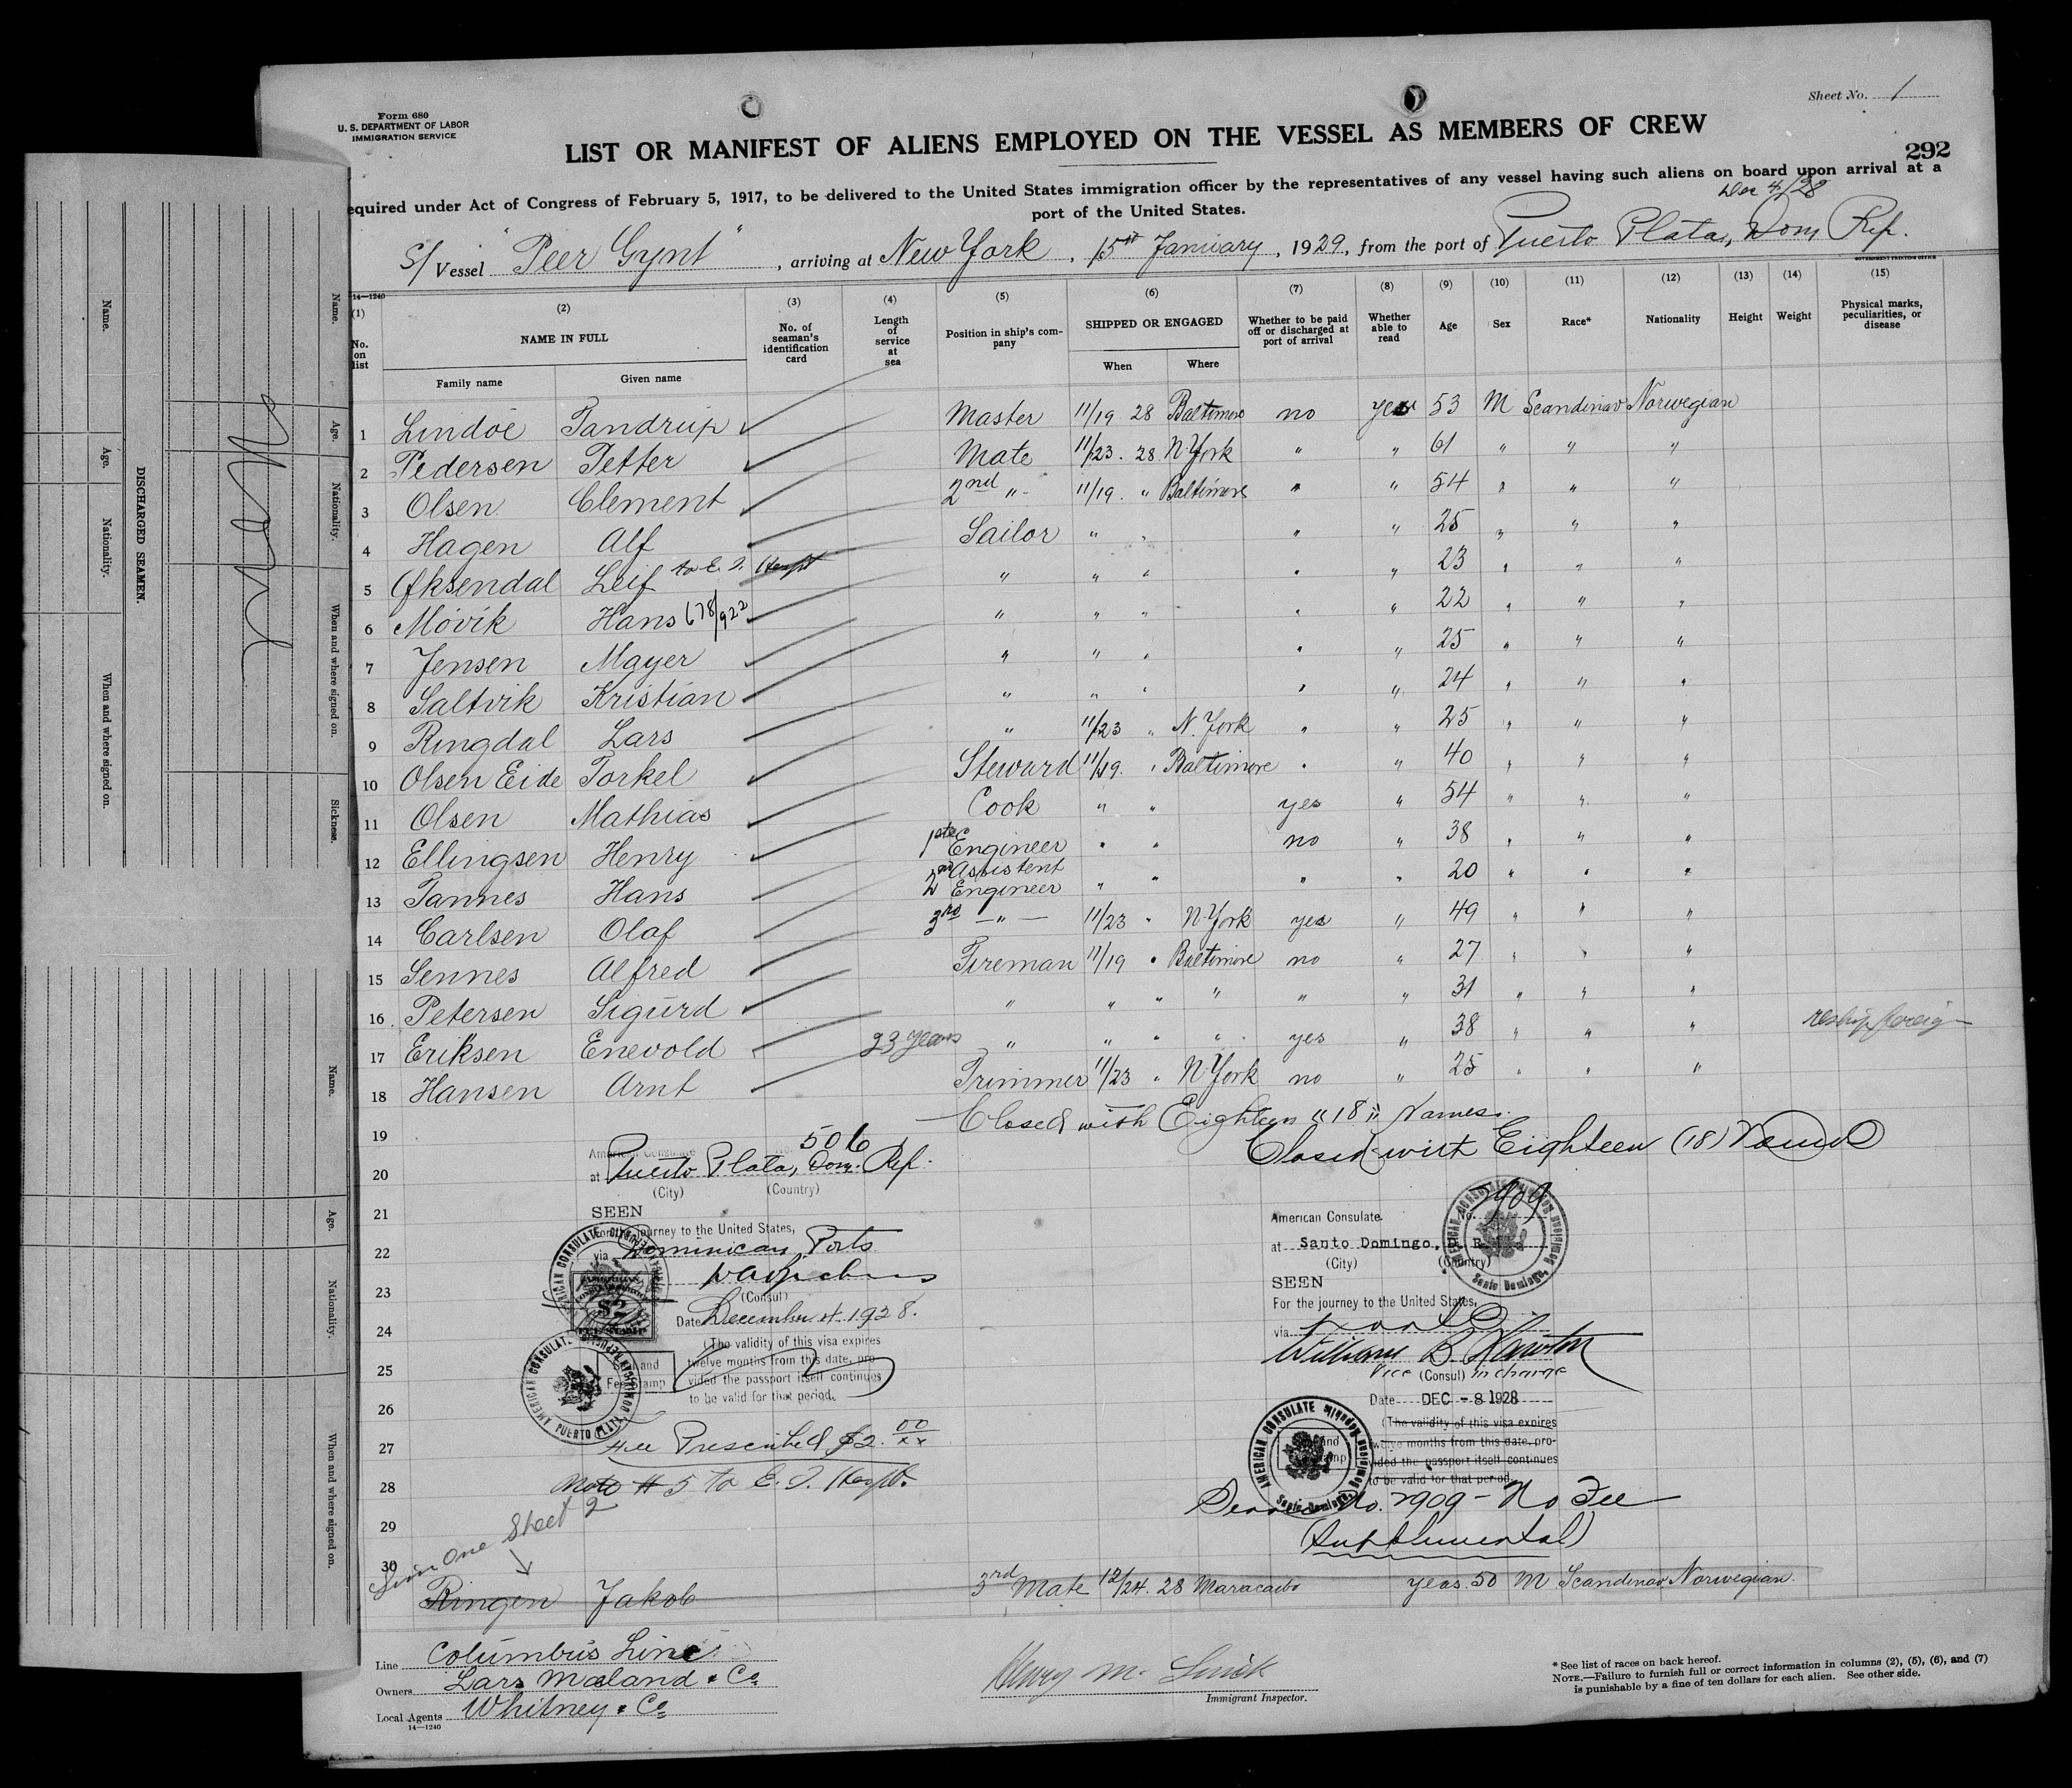 Form 680
U. S. DEPARTMENT OF LABOR
IMMIGRATION SERVICE
Sheet No. 1
LIST OR MANIFEST OF ALIENS EMPLOYED ON THE VESSEL AS MEMBERS OF CREW
292
equired under Act of Congress of February 5, 1917, to be delivered to the United States immigration officer by the representatives of any vessel having such aliens on board upon arrival at a
port of the United States.
Dec 4/28
S/ Vessel "Peer Gynt", arriving at New York, 15th January, 1929, from the port of Puerto Plata, Dom Rep.
GOVERNMENT PRINTING OFFICE
14—1240
(1) (2) (3) (4) (5) (6) (7) (8) (9) (10) (11) (12) (13) (14) (15)
No. on list
NAME IN FULL
Family name Given name
No. of seaman's identification card
Length of service at sea
Position in ship's company
SHIPPED OR ENGAGED
When Where
Whether to be paid off or discharged at port of arrival
Whether able to read
Age
Sex
Race*
Nationality
Height
Weight
Physical marks, peculiarities, or disease
1 Lindöe Tandrup Master 11/19 28 Baltimore no yes 53 M Scandinav Norwegian
2 Pedersen Petter Mate 11/23. 28 N. York " " 61 " " "
3 Olsen Clement 2nd " 11/19. " Baltimore " " 54 " " "
4 Hagen Alf Sailor " " " " 25 " " "
5 Øksendal Leif to E. I. Hospt " " " " " 23 " " "
6 Movik Hans 678/922 " " " " " 22 " " "
7 Jensen Mayer " " " " " 25 " " "
8 Saltvik Kristian " " " " " 24 " " "
9 Ringdal Lars " 11/23 " N. York " " 25 " " "
10 Olsen Eide Torkel Steward 11/19. " Baltimore " " 40 " " "
11 Olsen Mathias Cook " " yes " 54 " " "
12 Ellingsen Henry 1ste Engineer " " no " 38 " " "
13 Tannes Hans 2nd Assistent Engineer " " " " 20 " " "
14 Carlsen Olaf 3rd — " — 11/23 " N. York yes " 49 " " "
15 Sennes Alfred Fireman 11/19 " Baltimore no " 27 " " "
16 Petersen Sigurd " " " " " " 31 " " "
17 Eriksen Enevold 23 years " " " " yes " 38 " " " reship foreign
18 Hansen Arnt Trimmer 11/23 " N. York no " 25 " " "
19 Closed with Eighteen "18" Names.
Closed with Eighteen (18) Names
20
21
22
23
24
25
26
27
28
29
30
American Consulate No. 506
at Puerto Plata, Dom. Rep.
(City) (Country)
SEEN
For the journey to the United States,
via Dominican Ports
(Consul)
Date December 4. 1928.
(The validity of this visa expires
twelve months from this date, pro-
vided the passport itself continues
to be valid for that period.
Seal and
Fee Stamp
AMERICAN CONSULATE
$2
AMERICAN CONSULATE PUERTO PLATA
Fee Prescribed $2.00/xx
Note # 5 to E. I. Hospt.
American Consulate No. 2909
at Santo Domingo, D. R.
(City) (Country)
SEEN
For the journey to the United States,
via
William B. Lawton
Vice (Consul) in charge
Date DEC - 8 1928
(The validity of this visa expires
twelve months from this date, pro-
vided the passport itself continues
to be valid for that period.
AMERICAN CONSULATE Santo Domingo, Dominican Republic
AMERICAN CONSULATE Santo Domingo, Dominican Republic
Service No. 2909 - No Fee
(Supplemental)
One Sheet 2
Ringen Jakob 3rd Mate 12/24. 28 Maracaibo yeas. 50 M Scandinav Norwegian.
Line Columbus Line
Owners Lars Maland & Co.
Local Agents Whitney & Co.
14—1240
Henry M.
Immigrant Inspector.
* See list of races on back hereof.
NOTE.—Failure to furnish full or correct information in columns (2), (5), (6), and (7)
is punishable by a fine of ten dollars for each alien. See other side.
DISCHARGED SEAMEN.
Name.
Age.
Nationality.
When and where signed on.
Name.
Age.
Nationality.
When and where signed on.
Sickness.
Name.
Age.
Nationality.
When and where signed on.